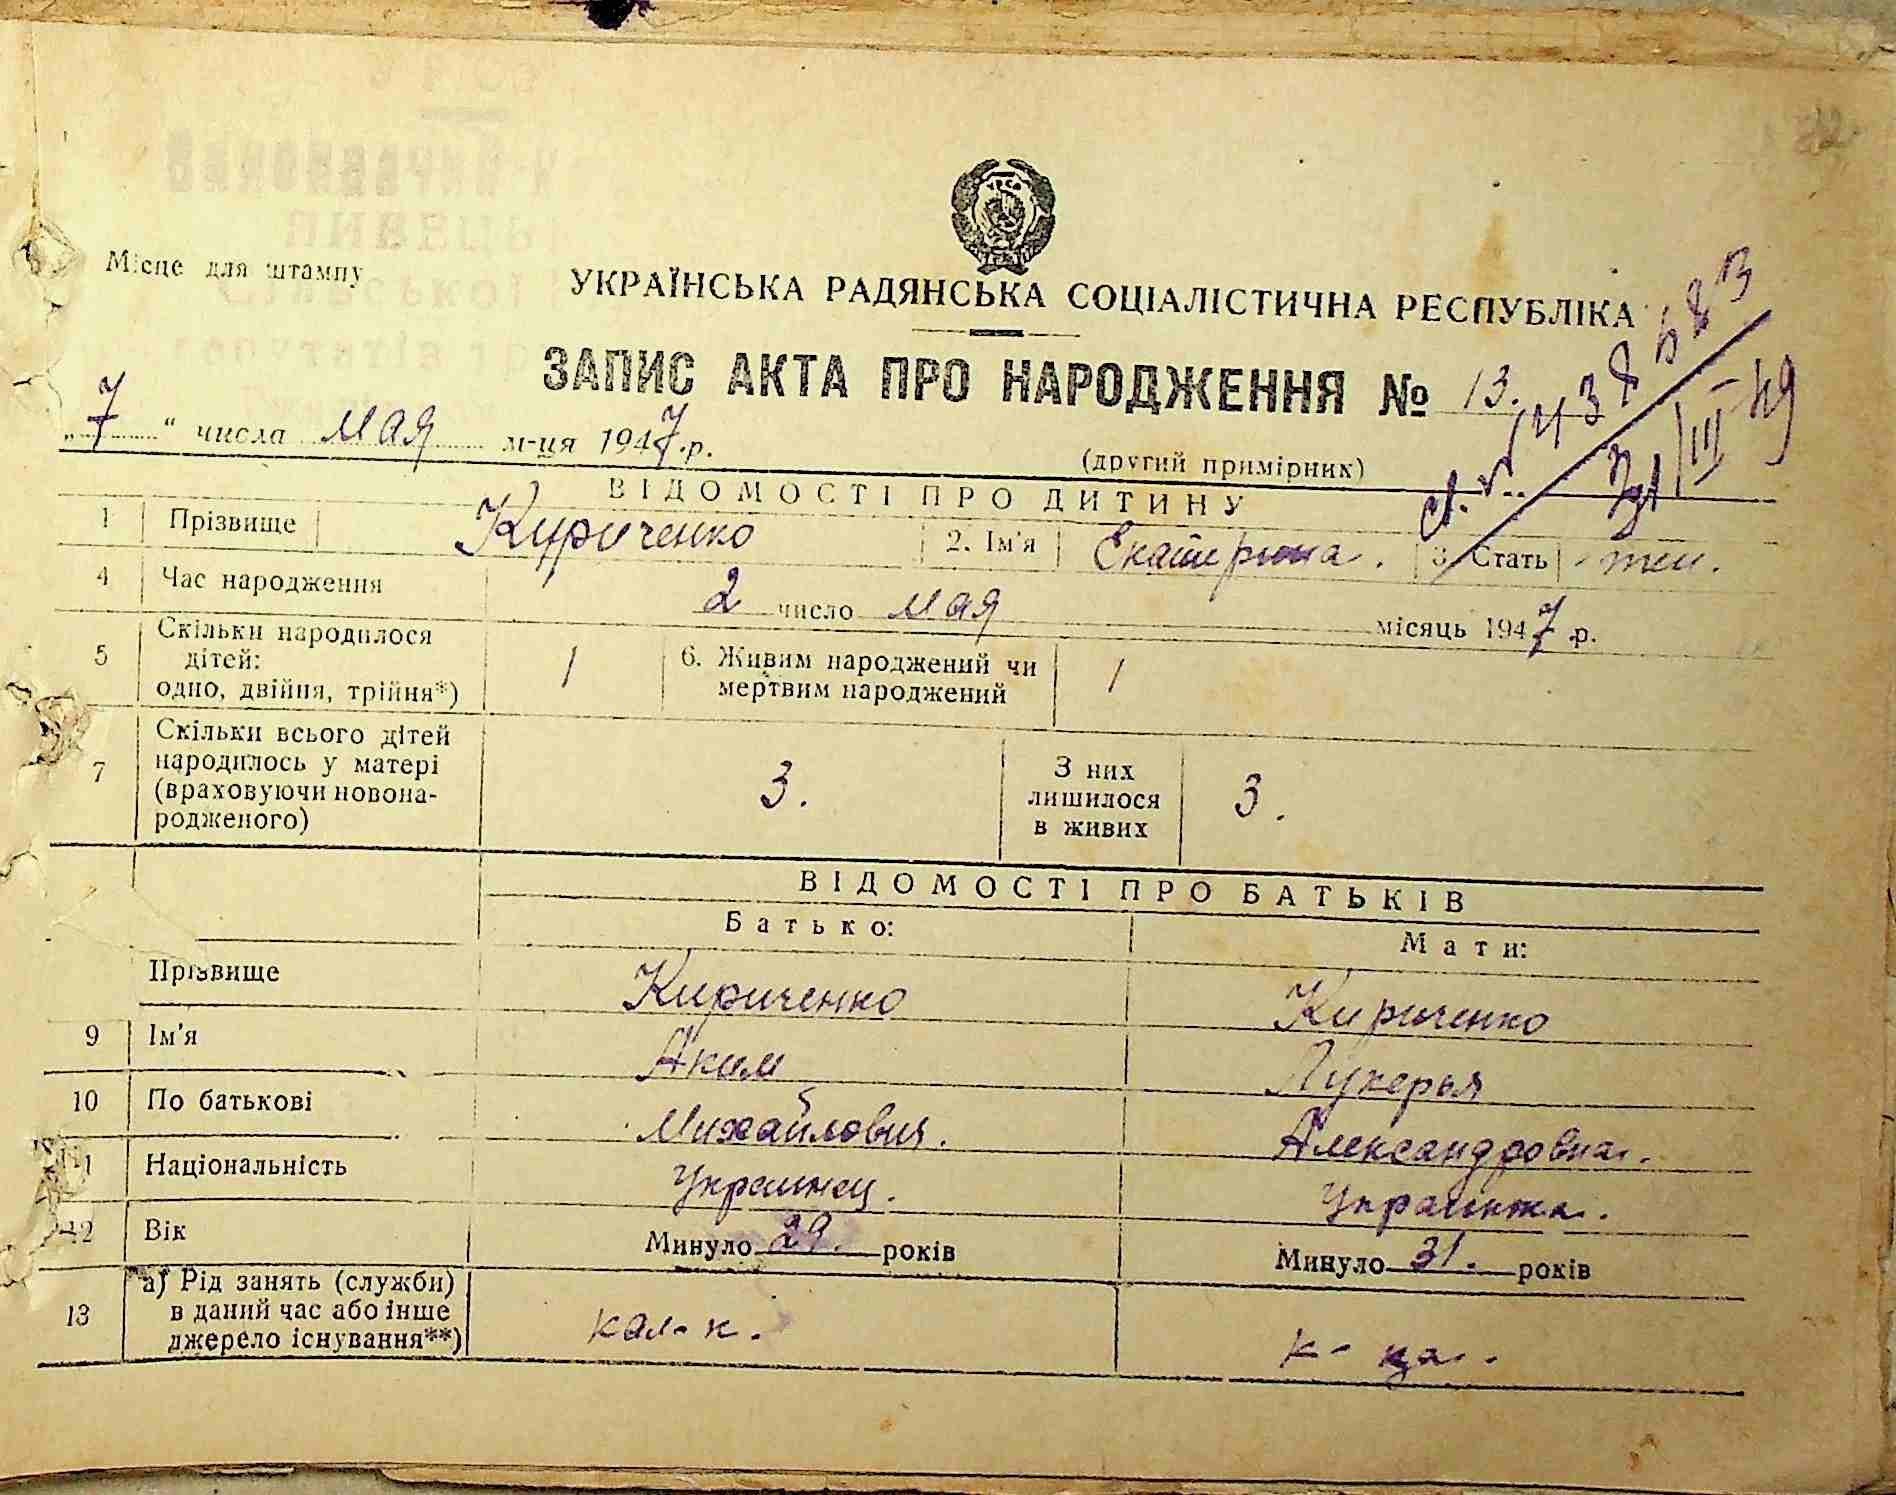 Місце для штампу
УКРАЇНСЬКА РАДЯНСЬКА СОЦІАЛІСТИЧНА РЕСПУБЛІКА
ЗАПИС АКТА ПРО НАРОДЖЕННЯ № 13.
„7“ числа мая м-ця 1947.р.
(другий примірник)
31/III-49
ВІДОМОСТІ ПРО ДИТИНУ
1 Прізвище Кириченко 2. Ім'я Екатерина. 3. Стать жен.
4 Час народження 2 число мая місяць 1947 р.
5 Скільки народилося
дітей:
одно, двійня, трійня*) 1 6. Живим народжений чи
мертвим народжений 1
7 Скільки всього дітей
народилось у матері
(враховуючи новона-
родженого) 3. З них
лишилося
в живих 3.
ВІДОМОСТІ ПРО БАТЬКІВ
Батько: Мати:
Прізвище Кириченко Кириченко
9 Ім'я Аким Лукерья
10 По батькові Михайлович. Александровна.
11 Національність Украинец. Украинка.
12 Вік Минуло 29. років Минуло 31. років
13 а) Рід занять (служби)
в даний час або інше
джерело існування**) кол-к. к-ца.